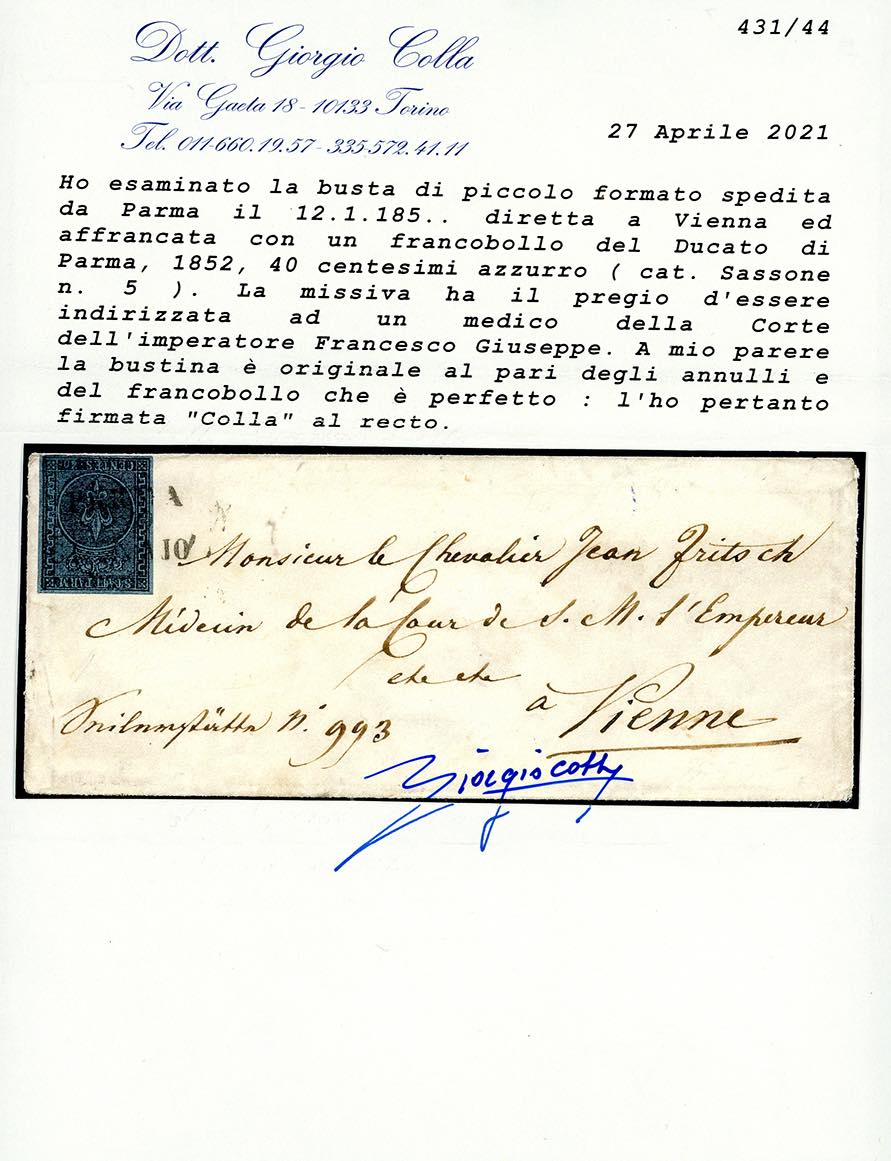 431/44
Dott. Giorgio Colla
Via Gaeta 18 - 10133 Torino
Tel. 011-660.19.57 - 335-572.41.11
27 Aprile 2021
Ho esaminato la busta di piccolo formato spedita
da Parma il 12.1.185.. diretta a Vienna ed
affrancata con un francobollo del Ducato di
Parma, 1852, 40 centesimi azzurro ( cat. Sassone
n. 5 ). La missiva ha il pregio d'essere
indirizzata ad un medico della Corte
dell'imperatore Francesco Giuseppe. A mio parere
la bustina è originale al pari degli annulli e
del francobollo che è perfetto : l'ho pertanto
firmata "Colla" al recto.
Monsieur le Chevalier Jean Fritsch
Médecin de la Cour de S. M. l'Empereur
etc etc
à Vienne
N. 993
Giorgio Colla